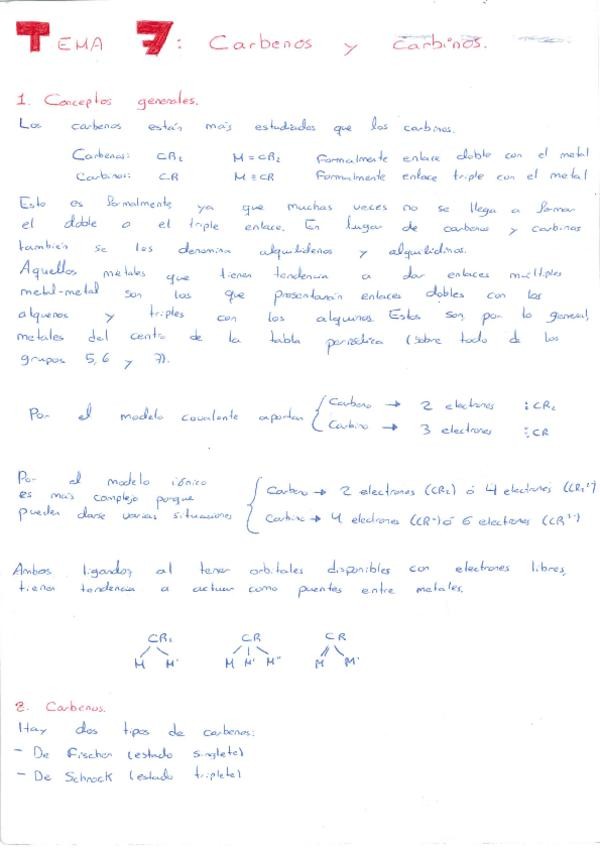 TEMA 7: Carbenos y carbinos.
1. Conceptos generales.
Los carbenos están más estudiados que los carbinos.
Carbenos: CR₂ M=CR₂ Formalmente enlace doble con el metal
Carbinos: CR M≡CR Formalmente enlace triple con el metal
Esto es formalmente ya que muchas veces no se llega a formar
el doble o el triple enlace. En lugar de carbenos y carbinos
también se les denomina alquilidenos y alquilidinos.
Aquellos metales que tienen tendencia a dar enlaces múltiples
metal-metal son los que presentarán enlaces dobles con los
alquenos y triples con los alquinos. Estos son, por lo general,
metales del centro de la tabla periódica (sobre todo de los
grupos 5, 6 y 7).
Por el modelo covalente aportan
Carbeno → 2 electrones :CR₂
Carbino → 3 electrones ⋮CR
Por el modelo iónico
es más complejo porque
pueden darse varias situaciones
Carbeno → 2 electrones (CR₂) ó 4 electrones (CR₂²⁻)
Carbino → 4 electrones (CR⁻) ó 6 electrones (CR³⁻)
Ambos ligandos, al tener orbitales disponibles con electrones libres,
tienen tendencia a actuar como puentes entre metales.
CR₂ CR CR
M M' M M' M'' M M'
2. Carbenos.
Hay dos tipos de carbenos:
- De Fischer (estado singlete)
- De Schrock (estado triplete)